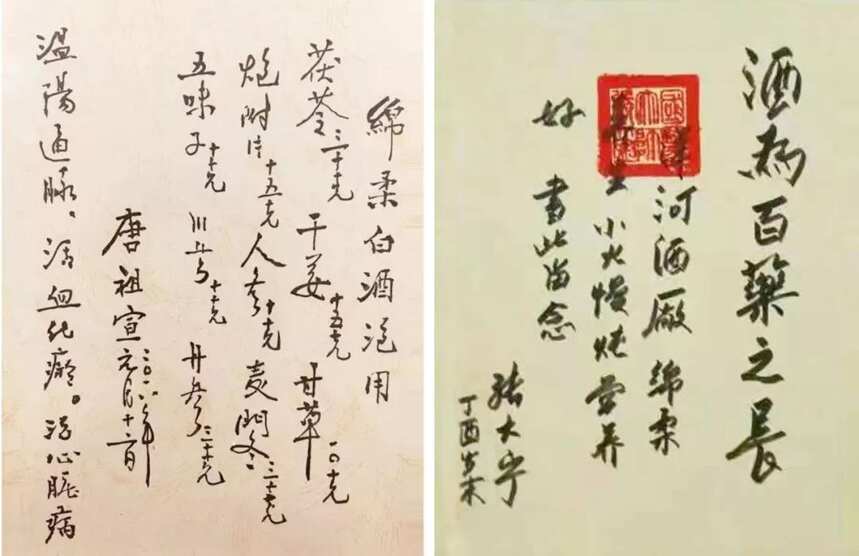 綿柔白酒泡用
茯苓三十克 干姜十五克 甘草
炮附片十五克 人参十克 麦門冬三十克
五味子十克 川芎十克 丹参三十克
唐祖宣 元月十六日
温陽通脉。活血化瘀。治心臟病
酒為百藥之長
洋河酒廠綿柔
小火慢炖營养
好 書此留念
張大宁
丁酉岁末